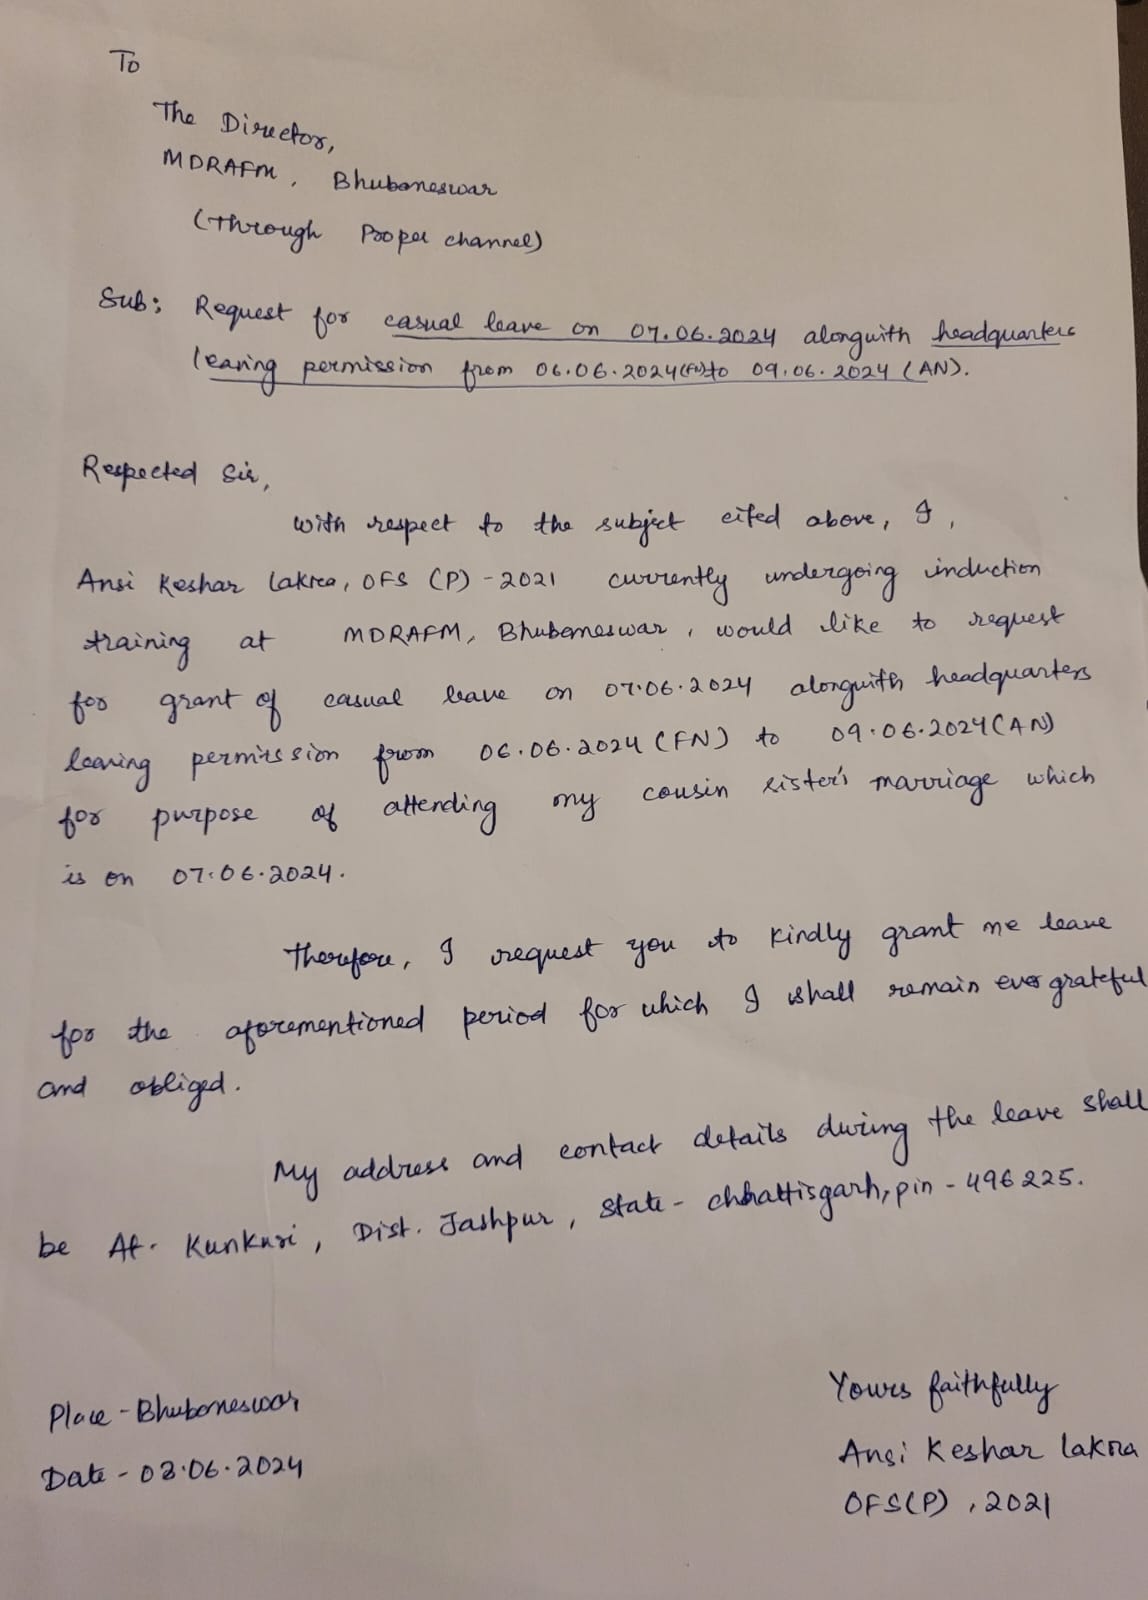 To
The Director,
MDRAFM, Bhubaneswar
(Through Proper channel)
Sub: Request for casual leave on 07.06.2024 alongwith headquarters
leaving permission from 06.06.2024(FN) to 09.06.2024 (AN).
Respected Sir,
With respect to the subject cited above, I,
Ansi Keshar Lakra, OFS (P) - 2021 currently undergoing induction
training at MDRAFM, Bhubaneswar, would like to request
for grant of casual leave on 07.06.2024 alongwith headquarters
leaving permission from 06.06.2024 (FN) to 09.06.2024(AN)
for purpose of attending my cousin sister's marriage which
is on 07.06.2024.
Therefore, I request you to kindly grant me leave
for the aforementioned period for which I shall remain ever grateful
and obliged.
My address and contact details during the leave shall
be At. Kunkuri, Dist. Jashpur, State - chhattisgarh, pin - 496225.
Place - Bhubaneswar
Date - 03.06.2024
Yours faithfully
Ansi Keshar Lakra
OFS(P), 2021